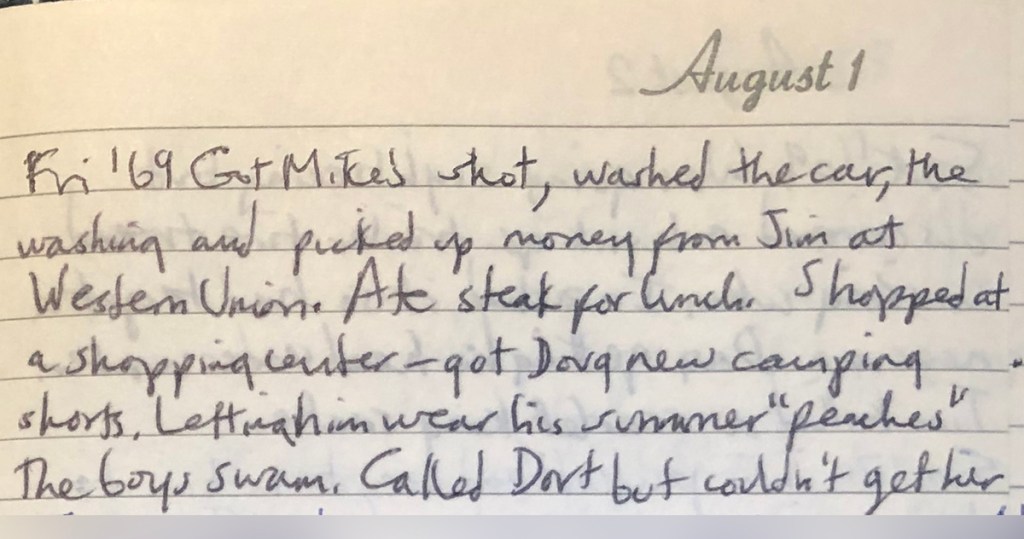 August 1
Fri '69 Got Mike's shot, washed the car, the
washing and picked up money from Jim at
Western Union. Ate steak for lunch. Shopped at
a shopping center - got Doug new camping
shorts. Letting him wear his summer "peaches"
The boys swam. Called Dort but couldn't get her